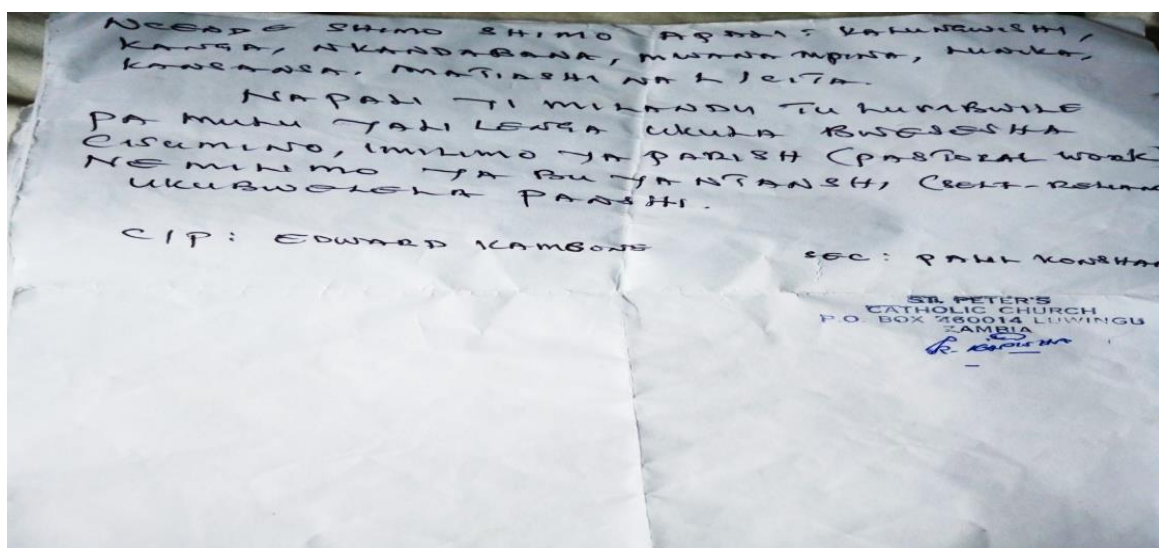 NCENDE SHIMO SHIMO APALI: KALUNGWISHI,
KANGA, NKANDABANA, MWANA MPINA, LUNIKA,
KANSANSA, MATIASHI NA LICITA.
NAPALI YI MILANDU TU LUMBWILE
PA MULU YALI LENGA UKULA BWESESHA
CISUMINO, IMILIMO YA PARISH (PASTORAL WORK
NE MILIMO YA BU YA NTANSHI (SELF-RELIANC
UKUBWELELA PANSHI.
C/P: EDWARD KAMBONE
SEC: PAUL KONSHA
ST. PETER'S
CATHOLIC CHURCH
P.O. BOX 460014 LUWINGU
ZAMBIA